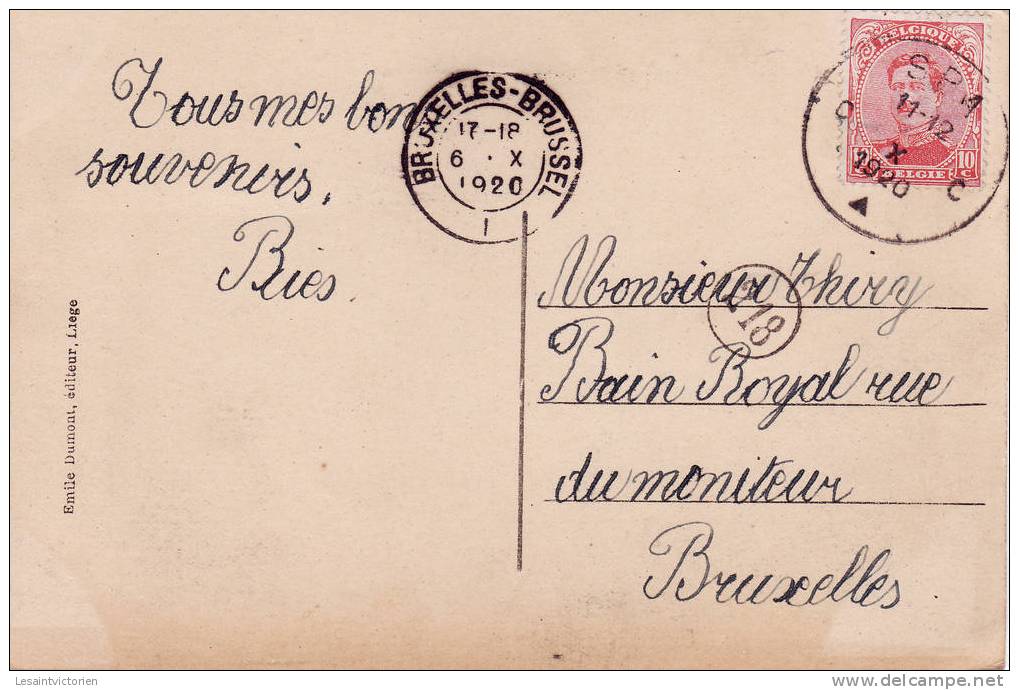 Tous mes bon
souvenirs.
Ries
Emile Dumont, éditeur, Liege
BRUXELLES-BRUSSEL
17-18
6 . X
1920
1
BELGIQUE
10 c
BELGIE
11-12
X
1920
C
218
Monsieur Thiry
Bain Royal rue
du moniteur
Bruxelles
Lesaintvictorien
delcampe.net